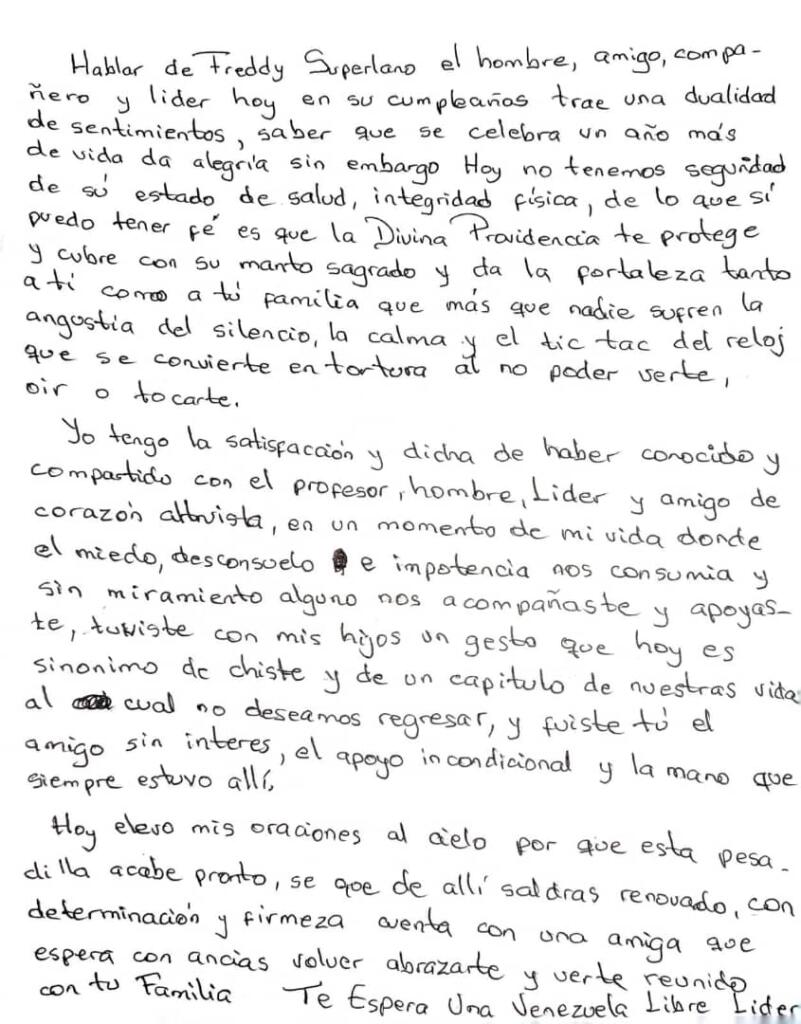 Hablar de Freddy Superlano el hombre, amigo, compa-
ñero y lider hoy en su cumpleaños trae una dualidad
de sentimientos, saber que se celebra un año más
de vida da alegría sin embargo Hoy no tenemos seguridad
de sú estado de salud, integridad física, de lo que sí
puedo tener fé es que la Divina Providencia te protege
y cubre con su manto sagrado y da la fortaleza tanto
a tí como a tú familia que más que nadie sufren la
angustia del silencio, la calma y el tic tac del reloj
que se convierte en tortura al no poder verte,
oir o tocarte.
Yo tengo la satisfacción y dicha de haber conocido y
compartido con el profesor, hombre, Lider y amigo de
corazón altruista, en un momento de mi vida donde
el miedo, desconsuelo e impotencia nos consumia y
sin miramiento alguno nos acompañaste y apoyas-
te, tuviste con mis hijos un gesto que hoy es
sinonimo de chiste y de un capitulo de nuestras vida
al cual no deseamos regresar, y fuiste tú el
amigo sin interes, el apoyo incondicional y la mano que
siempre estuvo allí.
Hoy elevo mis oraciones al cielo por que esta pesa-
dilla acabe pronto, se que de allí saldras renovado, con
determinación y firmeza cuenta con una amiga que
espera con ancias volver abrazarte y verte reunido
con tu Familia Te Espera Una Venezuela Libre Lider